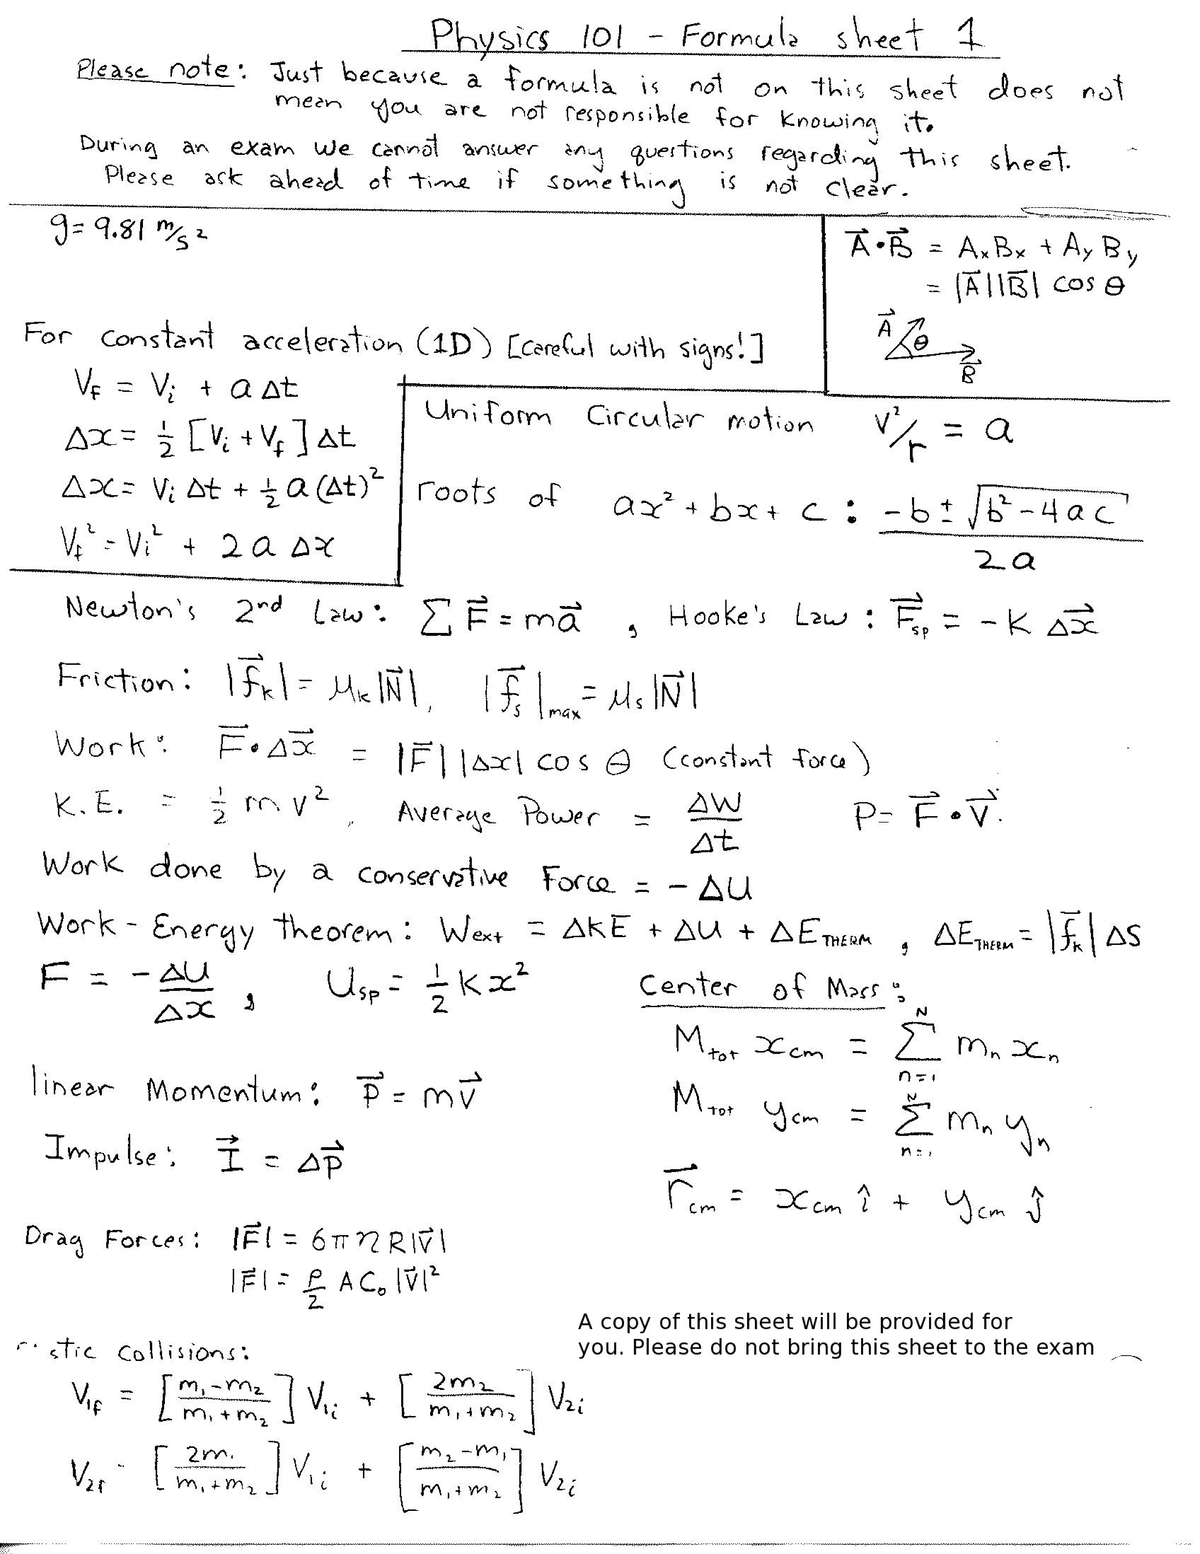 Physics 101 - Formula sheet 1
Please note: Just because a formula is not on this sheet does not
mean you are not responsible for knowing it.
During an exam we cannot answer any questions regarding this sheet.
Please ask ahead of time if something is not clear.
g = 9.81 m/s²
A⃗·B⃗ = AₓBₓ + A_y B_y
= |A⃗||B⃗| cos θ
A⃗ θ B⃗
For constant acceleration (1D) [careful with signs!]
V_f = V_i + a Δt
Δx = ½ [V_i + V_f] Δt
Δx = V_i Δt + ½ a (Δt)²
V_f² = V_i² + 2 a Δx
Uniform Circular motion v²/r = a
roots of ax² + bx + c : (-b ± √(b² - 4ac)) / 2a
Newton's 2nd Law: Σ F⃗ = ma⃗ , Hooke's Law : F⃗_sp = - K Δx⃗
Friction: |f⃗_k| = μ_k |N⃗|, |f⃗_s|_max = μ_s |N⃗|
Work: F⃗·Δx⃗ = |F⃗| |Δx| cos θ (constant force)
K.E. = ½ m v², Average Power = ΔW/Δt P = F⃗·V⃗.
Work done by a conservative Force = - ΔU
Work - Energy theorem: W_ext = ΔKE + ΔU + ΔE_THERM , ΔE_THERM = |f⃗_k| ΔS
F = -ΔU/Δx , U_sp = ½ K x²
Center of Mass:
M_tot x_cm = Σ_{n=1}^{N} m_n x_n
M_tot y_cm = Σ_{n=1}^{N} m_n y_n
r⃗_cm = x_cm î + y_cm ĵ
linear Momentum: P⃗ = mV⃗
Impulse: I⃗ = ΔP⃗
Drag Forces: |F⃗| = 6πηR|V⃗|
|F⃗| = ρ/2 A C_D |V⃗|²
A copy of this sheet will be provided for
you. Please do not bring this sheet to the exam
stic Collisions:
V_1f = [(m₁-m₂)/(m₁+m₂)] V_1i + [2m₂/(m₁+m₂)] V_2i
V_2f = [2m₁/(m₁+m₂)] V_1i + [(m₂-m₁)/(m₁+m₂)] V_2i